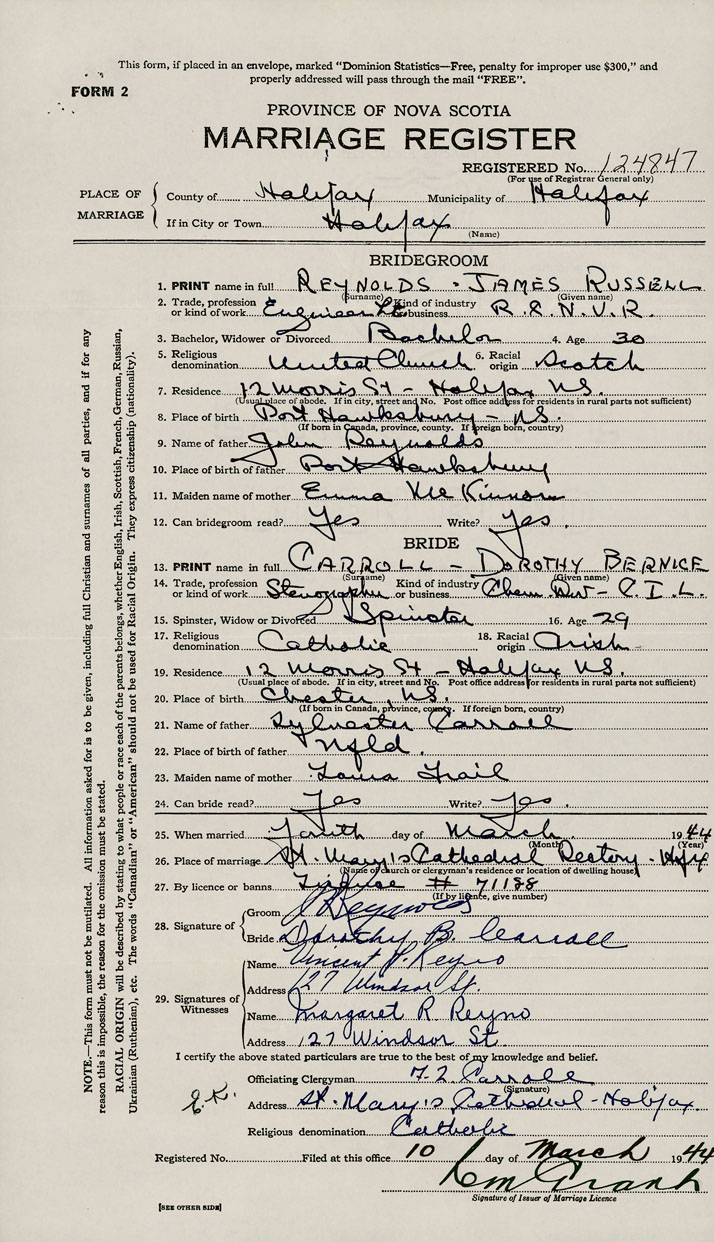 This form, if placed in an envelope, marked “Dominion Statistics—Free, penalty for improper use $300,” and
properly addressed will pass through the mail “FREE”.
FORM 2
PROVINCE OF NOVA SCOTIA
MARRIAGE REGISTER
REGISTERED No. 124847
(For use of Registrar General only)
PLACE OF MARRIAGE
County of Halifax Municipality of Halifax
If in City or Town Halifax
(Name)
BRIDEGROOM
1. PRINT name in full REYNOLDS - JAMES RUSSELL
(Surname) (Given name)
2. Trade, profession or kind of work Engineer Lt. Kind of industry or business R.C.N.V.R.
3. Bachelor, Widower or Divorced Bachelor 4. Age 30
5. Religious denomination United Church 6. Racial origin Scotch
7. Residence 12 Morris St - Halifax N.S.
(Usual place of abode. If in city, street and No. Post office address for residents in rural parts not sufficient)
8. Place of birth Port Hawksbury - N.S.
(If born in Canada, province, county. If foreign born, country)
9. Name of father John Reynolds
10. Place of birth of father Port Hawksbury
11. Maiden name of mother Emma McKinnon
12. Can bridegroom read? Yes Write? Yes.
BRIDE
13. PRINT name in full CARROLL - DOROTHY BERNICE
(Surname) (Given name)
14. Trade, profession or kind of work Stenographer Kind of industry or business Chem. - C.I.L.
15. Spinster, Widow or Divorced Spinster 16. Age 29
17. Religious denomination Catholic 18. Racial origin Irish
19. Residence 12 Morris St - Halifax N.S.
(Usual place of abode. If in city, street and No. Post office address for residents in rural parts not sufficient)
20. Place of birth Chester, N.S.
(If born in Canada, province, county. If foreign born, country)
21. Name of father Sylvester Carroll
22. Place of birth of father Nfld.
23. Maiden name of mother Trail
24. Can bride read? Yes Write? Yes.
25. When married day of March 1944
(Month) (Year)
26. Place of marriage St. Mary's Cathedral Rectory - Hfx
(Name of church or clergyman's residence or location of dwelling house)
27. By licence or banns # 71188
(If by licence, give number)
28. Signature of
Groom J Reynolds
Bride Dorothy B. Carroll
29. Signatures of Witnesses
Name Vincent J. Reyno
Address 127 Windsor St.
Name Margaret R. Reyno
Address 127 Windsor St.
I certify the above stated particulars are true to the best of my knowledge and belief.
Officiating Clergyman Carroll
(Signature)
Address St. Mary's Cathedral - Halifax.
Religious denomination Catholic
Registered No. Filed at this office 10 day of March 1944
Grant
Signature of Issuer of Marriage Licence
[SEE OTHER SIDE]
NOTE.—This form must not be mutilated. All information asked for is to be given, including full Christian and surnames of all parties, and if for any
reason this is impossible, the reason for the omission must be stated.
RACIAL ORIGIN will be described by stating to what people or race each of the parents belongs, whether English, Irish, Scottish, French, German, Russian,
Ukrainian (Ruthenian), etc. The words “Canadian” or “American” should not be used for Racial Origin. They express citizenship (nationality).